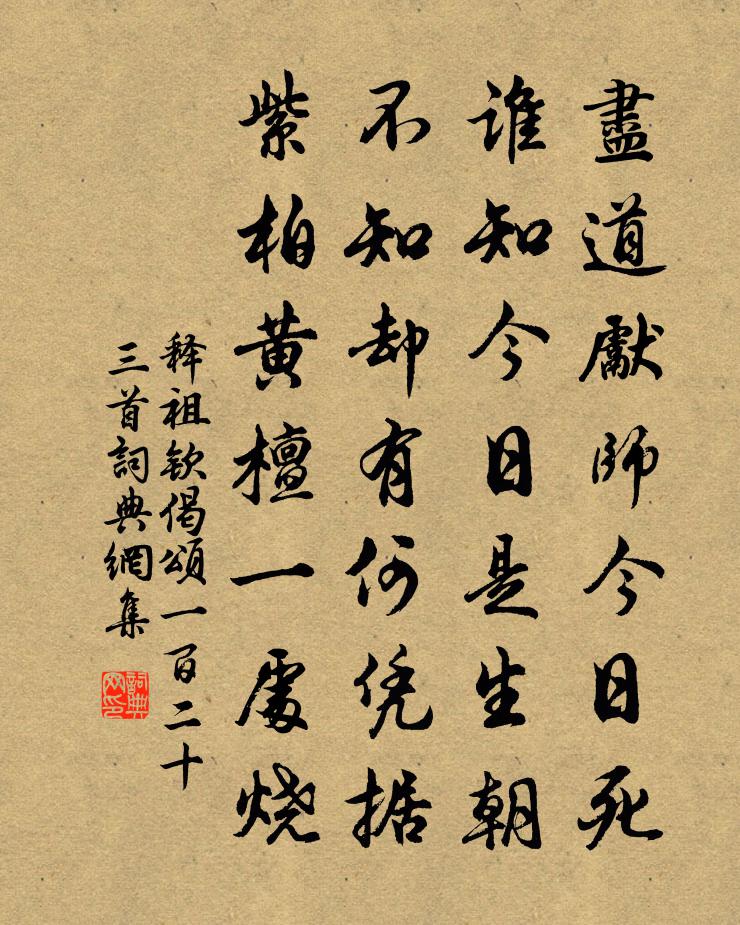 盡道獻師今日死
誰知今日是生朝
不知却有何凭据
紫柏黃檀一處燒
释祖欽偈頌一百二十
三首詞典網集
詞典网印